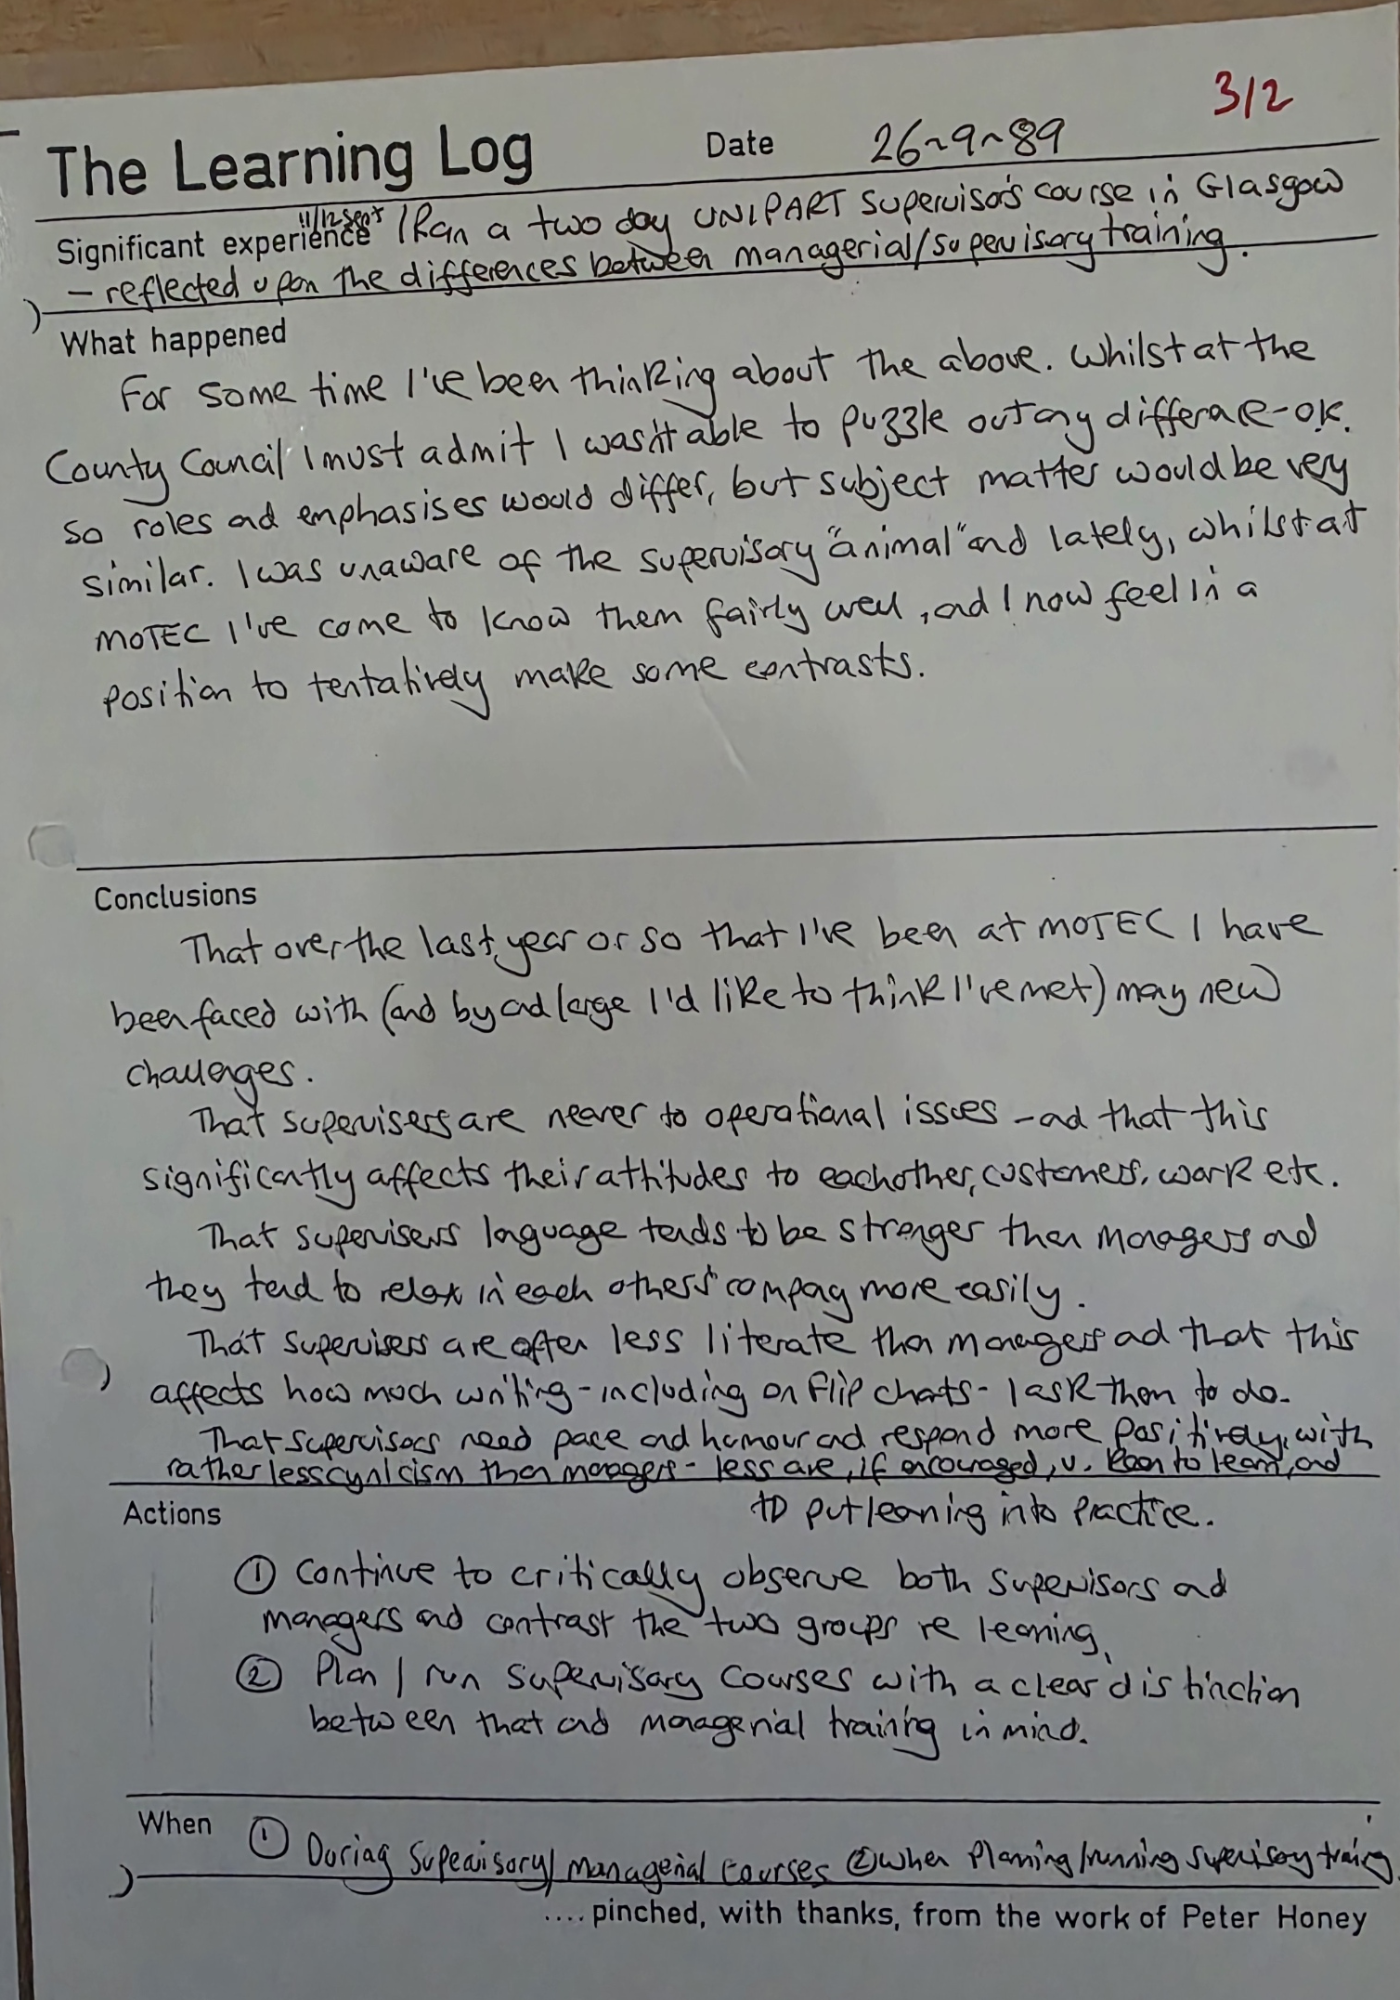 3/2
The Learning Log Date 26-9-89
Significant experience 11/12 Sept I Ran a two day UNIPART Supervisor's course in Glasgow
- reflected upon the differences between managerial/supervisory training.
What happened
For some time I've been thinking about the above. Whilst at the
County Council I must admit I wasn't able to puzzle out any difference - ok.
so roles and emphasises would differ, but subject matter would be very
similar. I was unaware of the supervisory "animal" and lately, whilst at
MOTEC I've come to know them fairly well, and I now feel in a
position to tentatively make some contrasts.
Conclusions
That over the last year or so that I've been at MOTEC I have
been faced with (and by and large I'd like to think I've met) many new
challenges.
That supervisers are nearer to operational issues - and that this
significantly affects their attitudes to each other, customers, work etc.
That supervisers language tends to be stronger than managers and
they tend to relax in each others' company more easily.
That supervisers are often less literate than managers and that this
affects how much writing - including on flip charts - I ask them to do.
That supervisors need pace and humour and respond more positively, with
rather less cynicism than managers - less are, if encouraged, v. keen to learn, and
to put learning into practice.
Actions
① Continue to critically observe both supervisors and
managers and contrast the two groups re learning.
② Plan / run supervisory courses with a clear distinction
between that and managerial training in mind.
When ① During Supervisory/managerial courses ② when planning/running supervisory training
.... pinched, with thanks, from the work of Peter Honey